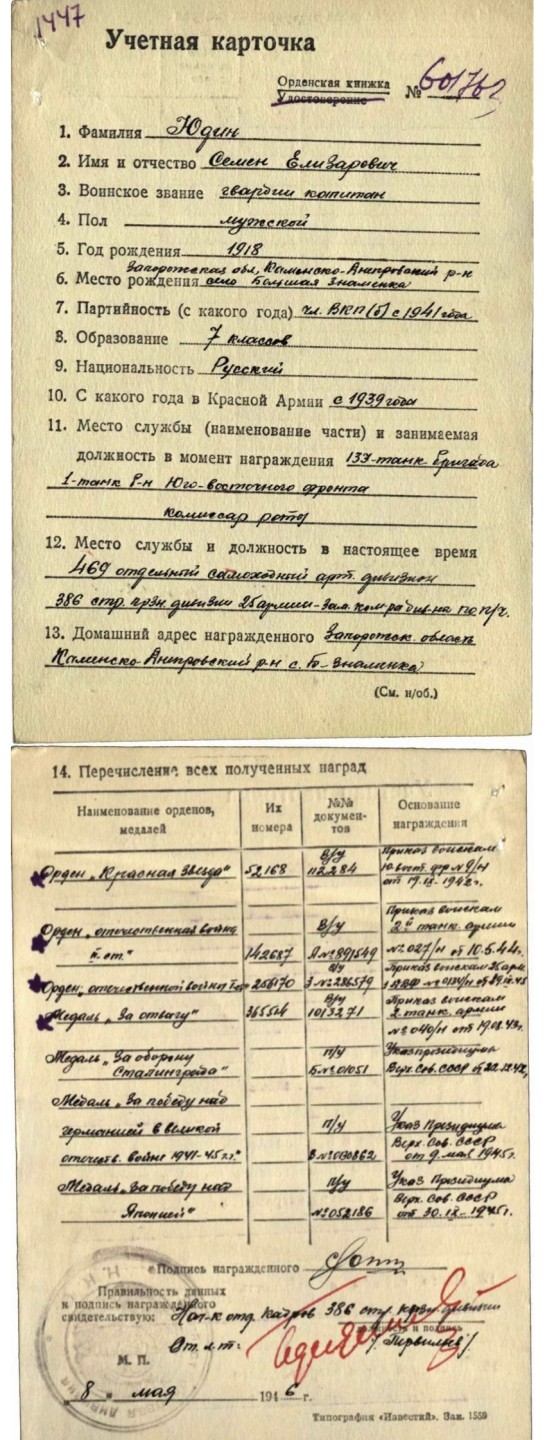 1447
Учетная карточка
Орденская книжка
Удостоверение № 601762
1. Фамилия Юдин
2. Имя и отчество Семен Елизарович
3. Воинское звание гвардии капитан
4. Пол мужской
5. Год рождения 1918
Запорожская обл, Каменско-Днепровский р-н
6. Место рождения село Большая Знаменка
7. Партийность (с какого года) чл. ВКП(б) с 1941 года
8. Образование 7 классов
9. Национальность Русский
10. С какого года в Красной Армии с 1939 года
11. Место службы (наименование части) и занимаемая
должность в момент награждения 133-танк. бригада
1-танк к-н Юго-восточного фронта
комиссар роты
12. Место службы и должность в настоящее время
469 отдельный самоходный арт. дивизион
386 стр. дивизии 25 армии-зам. ком-ра див-на по п/ч.
13. Домашний адрес награжденного Запорожск. область
Каменско-Днепровский р-н с. Б-Знаменка
(См. н/об.)
14. Перечисление всех полученных наград
Наименование орденов, медалей
Их номера
№№ документов
Основание награждения
Орден „Красная Звезда" 52168 В/у 112284 Приказ войскам
Ю вост. фр № 9/н
от 19.IX-1942 г.
Орден „Отечественная война
II ст." 142687 В/у Д № 891549 Приказ войскам
2й танк. армии
№ 027/н от 10.5.44 г.
Орден „отечественной войны 256170 В/у З № 286579 Приказ войскам 25 арм.
Медаль „За отвагу" 365514 В/у 1013271 Приказ войскам
2 танк. армии
№ 040/н от 19.08.43 г.
Медаль „За оборону
Сталинграда" п/у Б № 01051 Указ президиума
Верх. Сов. СССР от 22.12.42 г.
Медаль „За победу над
германией в великой
отечеств. войне 1941-45 г.г." п/у В № 0030862 Указ Президиума
Верх. Сов. СССР
от 9. мая 1945 г.
Медаль „За победу над
Японией" п/у № 052186 Указ Президиума
Верх. Сов. СССР
от 30.IX-1945 г.
Подпись награжденного
Правильность данных
и подпись награжденного
свидетельствую: Нач-к отд. кадров 386 стр. дивизии
М. П.
„8" мая 1946 г.
Типография «Известий». Зак. 1559